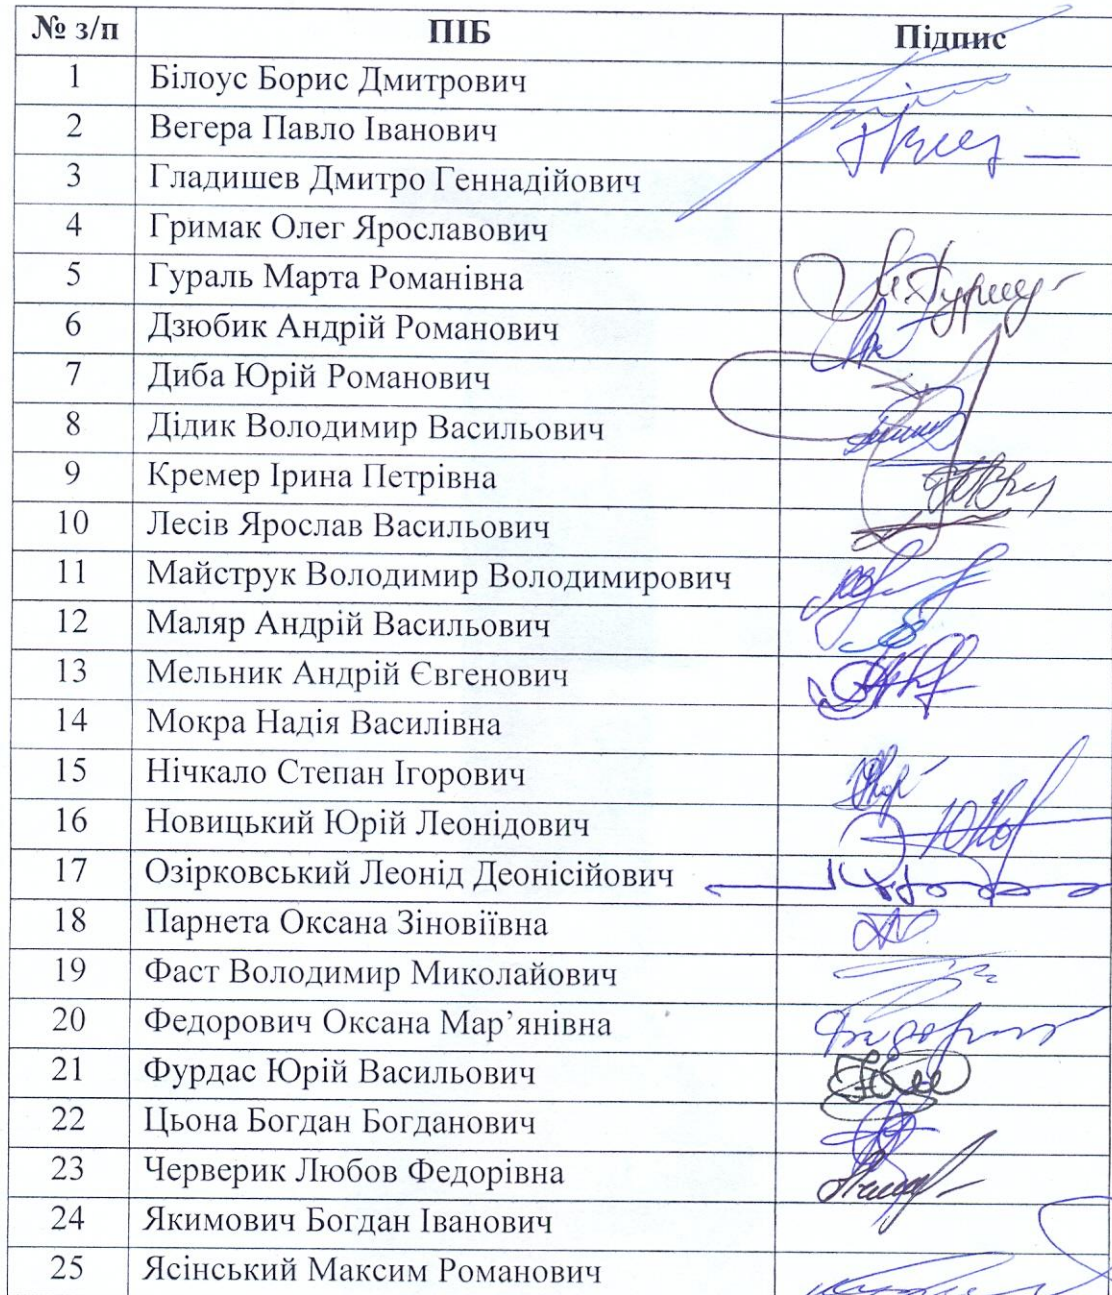 № з/п ПІБ Підпис
1 Білоус Борис Дмитрович
2 Вегера Павло Іванович
3 Гладишев Дмитро Геннадійович
4 Гримак Олег Ярославович
5 Гураль Марта Романівна
6 Дзюбик Андрій Романович
7 Диба Юрій Романович
8 Дідик Володимир Васильович
9 Кремер Ірина Петрівна
10 Лесів Ярослав Васильович
11 Майструк Володимир Володимирович
12 Маляр Андрій Васильович
13 Мельник Андрій Євгенович
14 Мокра Надія Василівна
15 Нічкало Степан Ігорович
16 Новицький Юрій Леонідович
17 Озірковський Леонід Деонісійович
18 Парнета Оксана Зіновіївна
19 Фаст Володимир Миколайович
20 Федорович Оксана Мар’янівна
21 Фурдас Юрій Васильович
22 Цьона Богдан Богданович
23 Черверик Любов Федорівна
24 Якимович Богдан Іванович
25 Ясінський Максим Романович